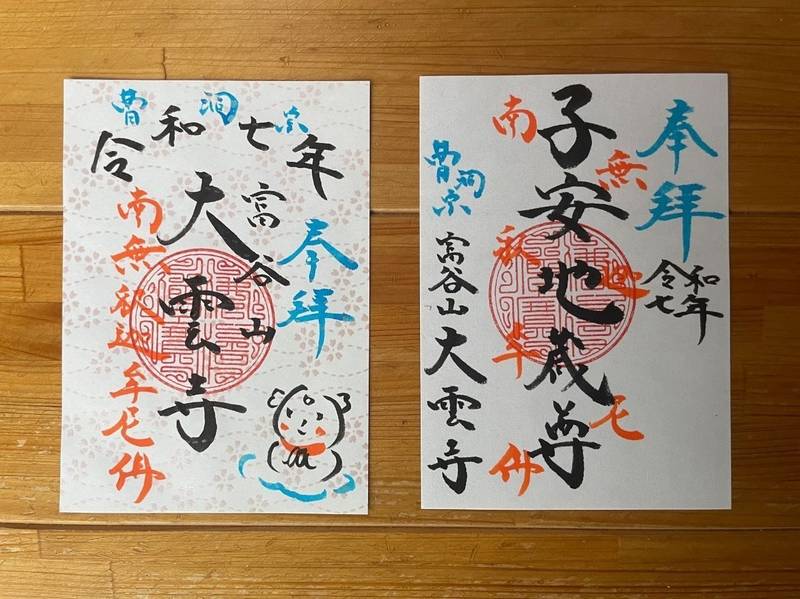 曹洞宗
令和七年
奉拝
富谷山
大雲寺
南無釈迦牟尼佛
奉拝
令和七年
子安地蔵尊
南無釈迦牟尼佛
曹洞宗
富谷山大雲寺